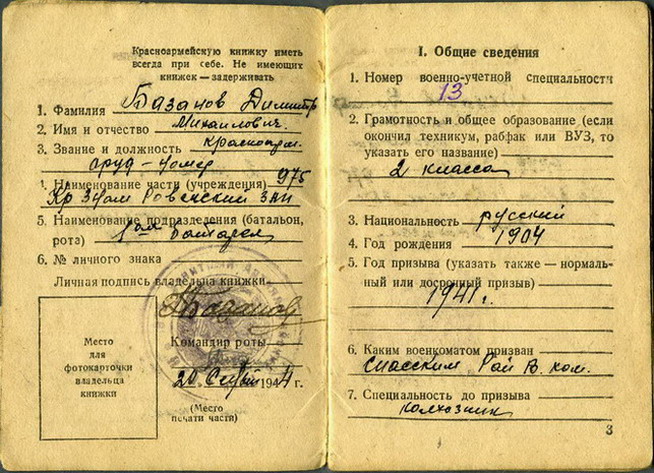 Красноармейскую книжку иметь
всегда при себе. Не имеющих
книжек — задерживать
1. Фамилия Базанов Димитр
2. Имя и отчество Михаилович.
3. Звание и должность Красноарм.
оруд – номер
4. Наименование части (учреждения) 975
Кр Знам Ровенский ЗАП
5. Наименование подразделения (батальон,
рота) батарея
6. № личного знака
Личная подпись владельца книжки
Базанов
Командир роты
20 194 4 г.
(Место
печати части)
Место
для
фотокарточки
владельца
книжки
I. Общие сведения
1. Номер военно-учетной специальности
13
2. Грамотность и общее образование (если
окончил техникум, рабфак или ВУЗ, то
указать его название)
2 класса
3. Национальность русский
4. Год рождения 1904
5. Год призыва (указать также — нормаль-
ный или досрочный призыв)
1941 г.
6. Каким военкоматом призван
Спасским Рай В. ком.
7. Специальность до призыва
колхозник
3